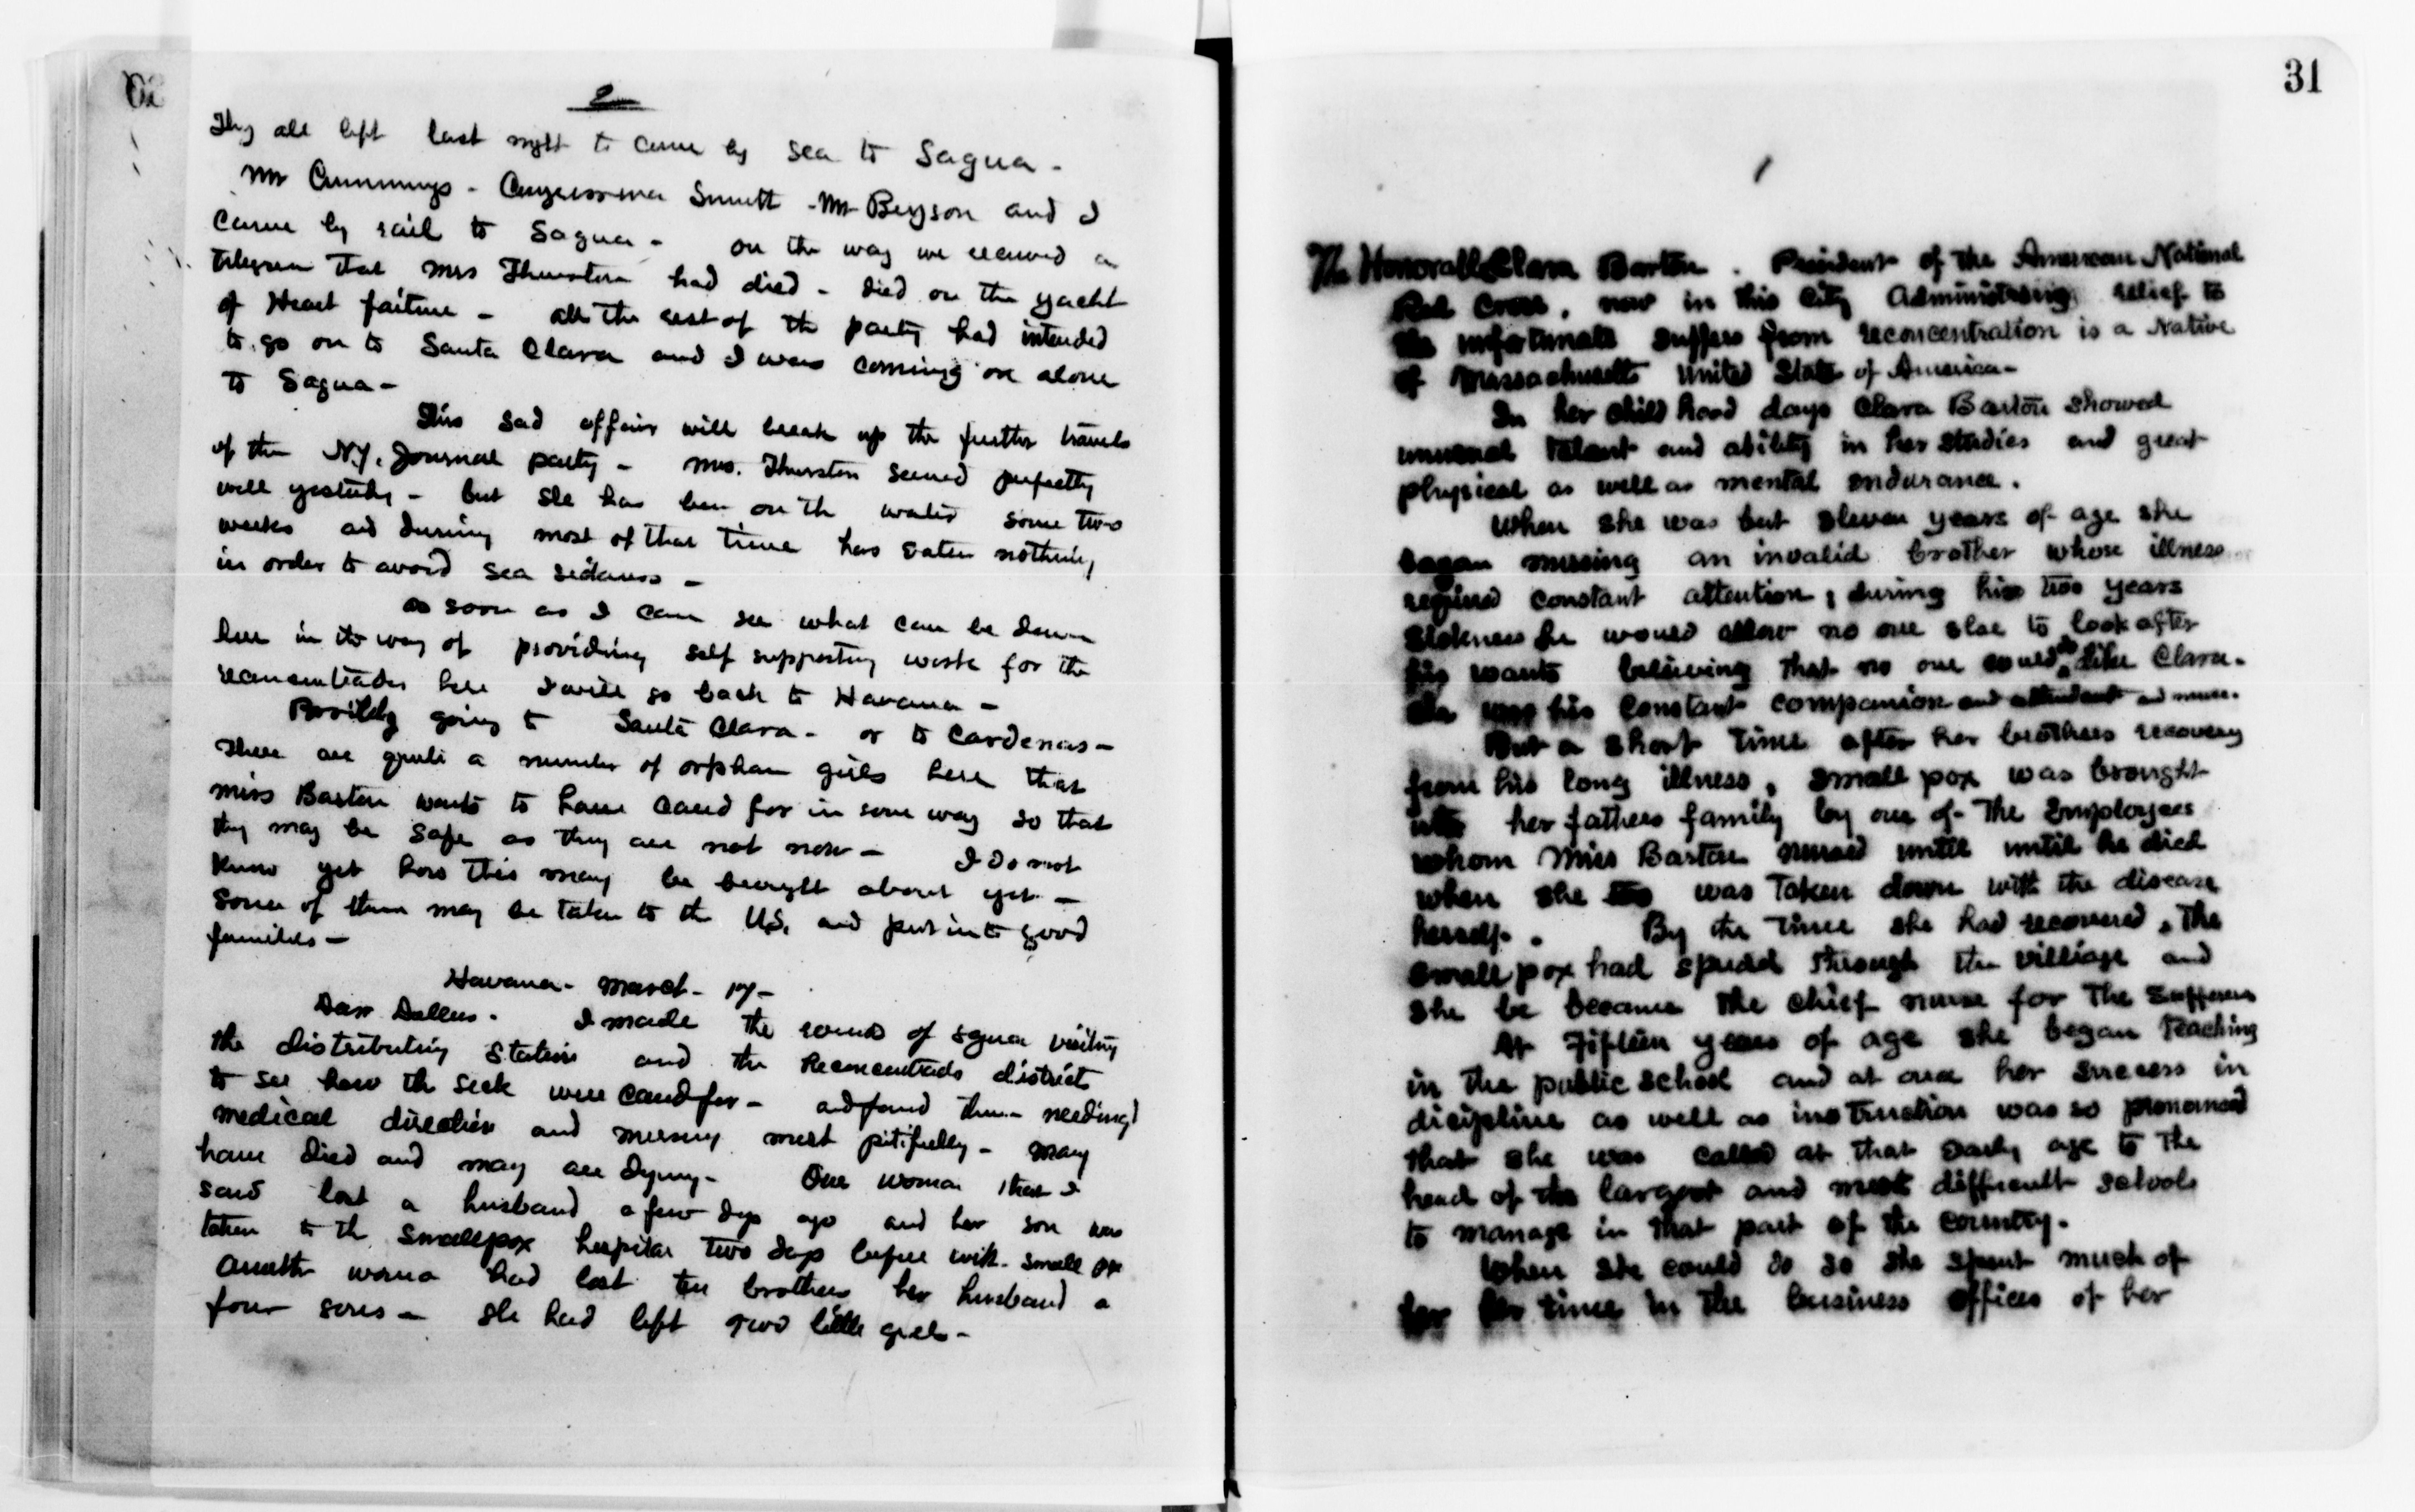 2
They all left last night to come by sea to Sagua -
Mr Cummings - Congressman Smith - Mr Bryson and I
came by rail to Sagua - on the way we received a
telegram that Mrs Thurston had died - died on the yacht
of Heart failure - all the rest of the party had intended
to go on to Santa Clara and I was coming on alone
to Sagua -
This sad affair will break up the further travels
of the N.Y. Journal party - Mrs. Thurston seemed perfectly
well yesterday - but she has been on the water some two
weeks and during most of that time has eaten nothing
in order to avoid sea sickness -
As soon as I can see what can be done
here in the way of providing self supporting work for the
reconcentrados here I will go back to Havana -
Possibly going to Santa Clara - or to Cardenas -
There are quite a number of orphan girls here that
Miss Barton wants to have cared for in some way so that
they may be safe as they are not now - I do not
know yet how this may be brought about yet -
Some of them may be taken to the U.S. and put into good
families -
Havana - March - 17 -
I made the rounds of Sagua visiting
the distributing station and the Reconcentrado district
to see how the sick were cared for - and found them needing
medical direction and nursing most pitifully - Many
have died and many are dying - One woman that I
saw lost a husband a few days ago and her son was
taken to the Smallpox hospital two days before with small pox
Another woman had lost ten brothers her husband a
four sons - She had left two little girls -
31
1
The Honorable Clara Barton. President of the American National
Red Cross, now in this City Administering relief to
the unfortunate suffers from reconcentration is a Native
of Massachusetts United State of America -
In her child hood days Clara Barton showed
unusual talent and ability in her studies and great
physical as well as mental endurance.
When she was but eleven years of age she
began nursing an invalid brother whose illness
required constant attention, during his two years
sickness he would allow no one else to look after
his wants believing that no one could do like Clara -
She was his constant companion and attendant and nurse.
But a short time after her brothers recovery
from his long illness, small pox was brought
into her fathers family by one of the Employees
whom Miss Barton nursed until until he died
when she too was taken down with the disease
herself. By the time she had recovered, the
small pox had spread through the villiage and
she be became the chief nurse for the sufferers
At fifteen years of age she began teaching
in the public school and at once her success in
dicipline as well as instruction was so pronounced
that she was called at that early age to the
head of the largest and most difficult schools
to manage in that part of the country.
When she could do so she spent much of
her her time in the business offices of her